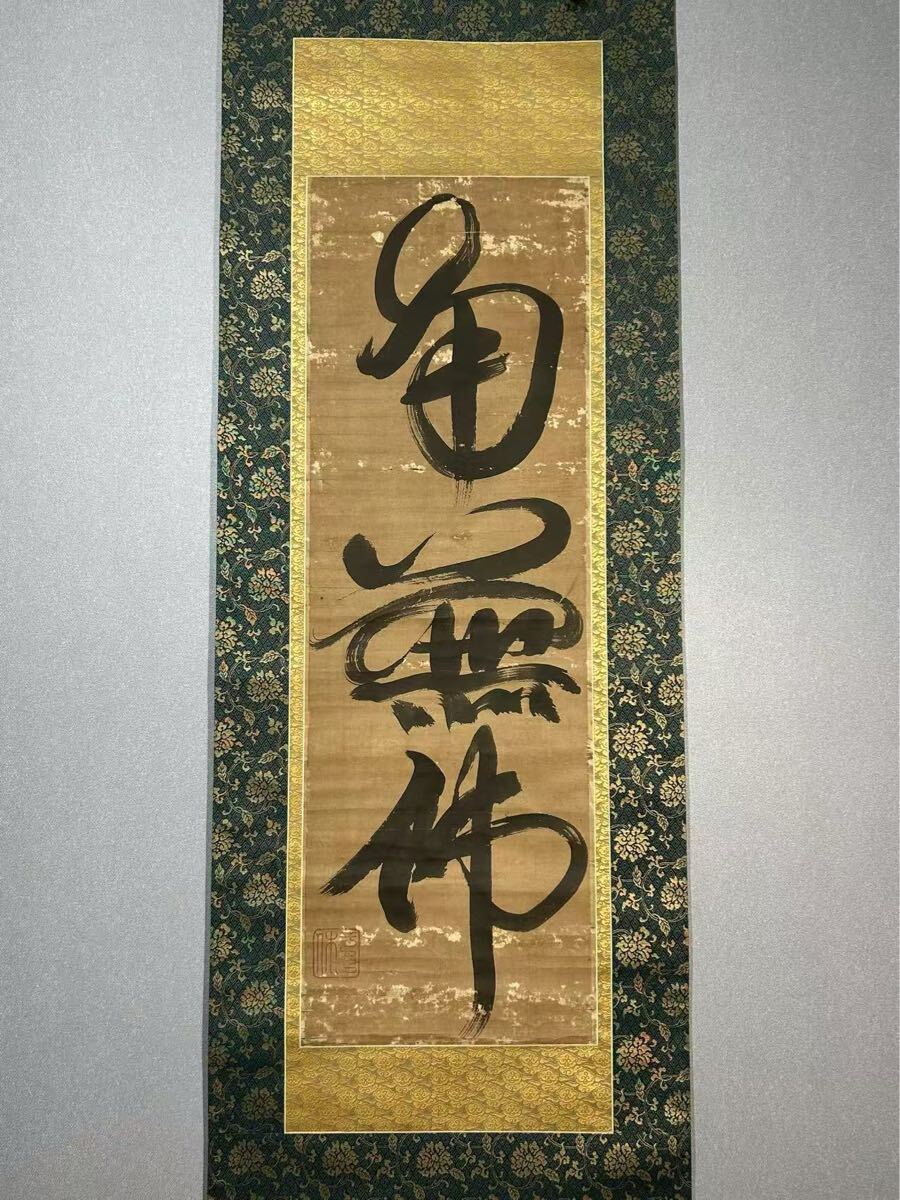 南無佛